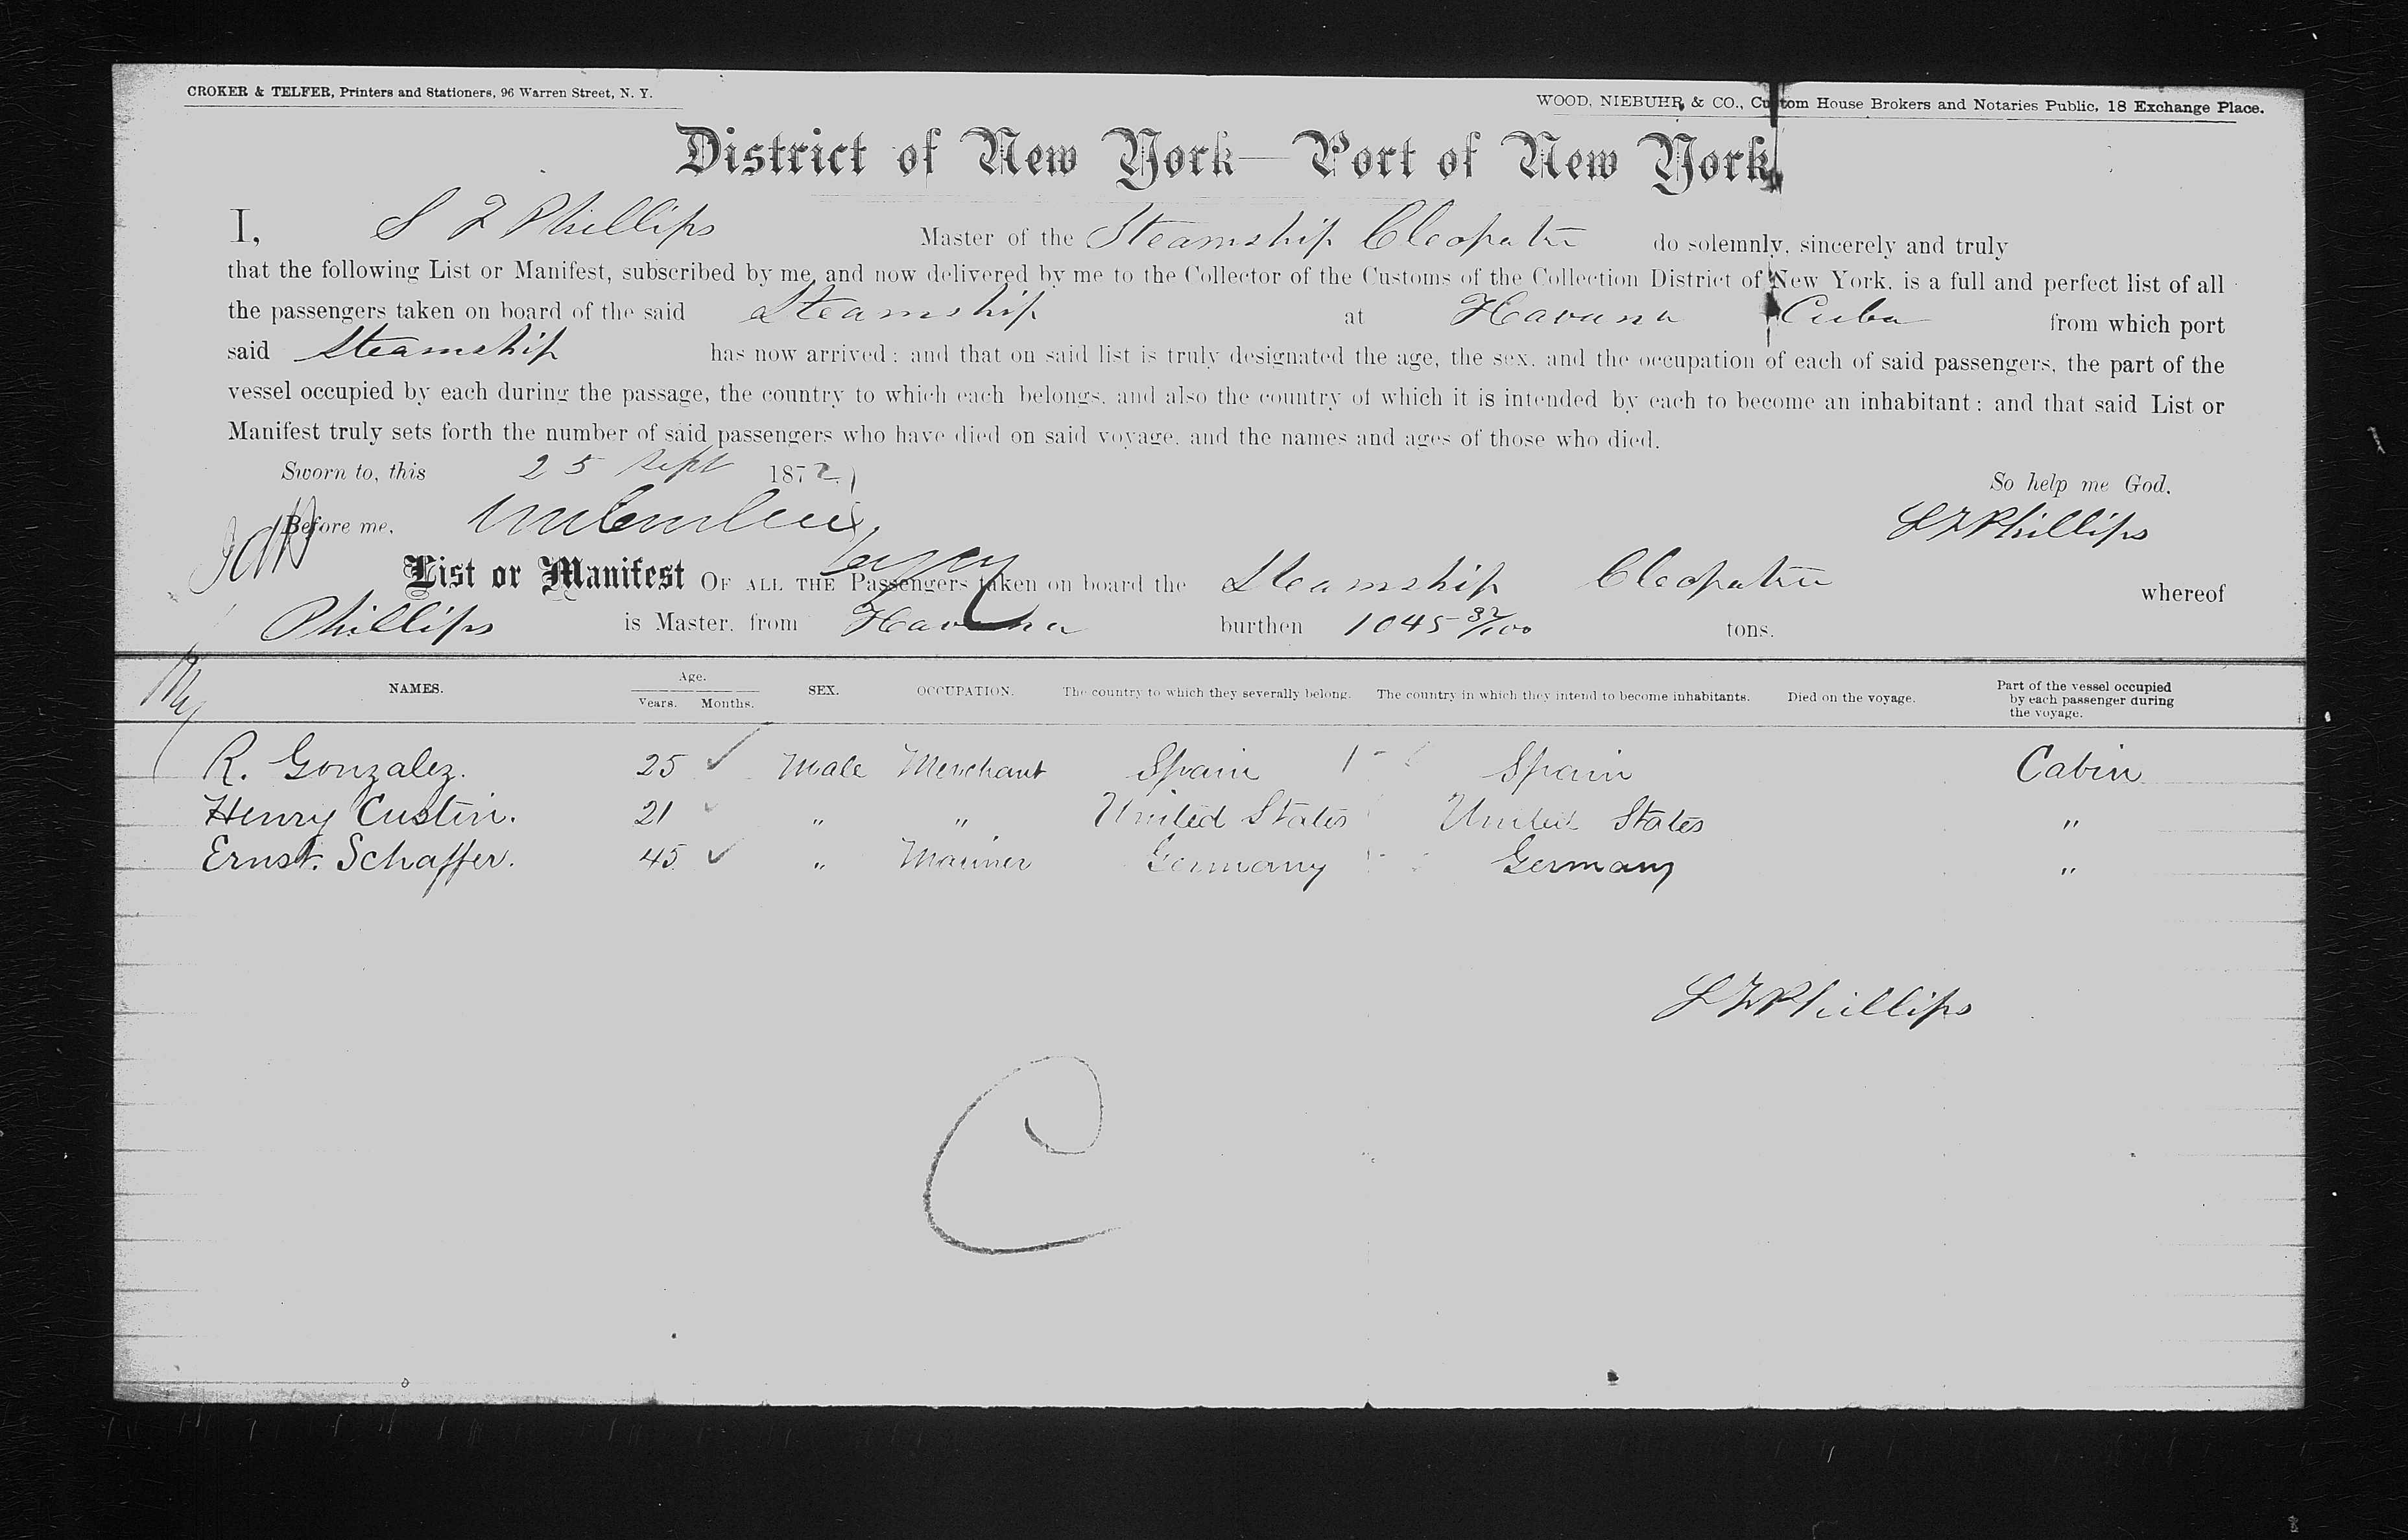 CROKER & TELFER, Printers and Stationers, 96 Warren Street, N. Y.
WOOD, NIEBUHR & CO., Custom House Brokers and Notaries Public, 18 Exchange Place.
District of New York—Port of New York.
I, S F Phillips Master of the Steamship Cleopatra do solemnly, sincerely and truly
that the following List or Manifest, subscribed by me, and now delivered by me to the Collector of the Customs of the Collection District of New York, is a full and perfect list of all
the passengers taken on board of the said Steamship at Havana Cuba from which port
said Steamship has now arrived: and that on said list is truly designated the age, the sex, and the occupation of each of said passengers, the part of the
vessel occupied by each during the passage, the country to which each belongs, and also the country of which it is intended by each to become an inhabitant: and that said List or
Manifest truly sets forth the number of said passengers who have died on said voyage, and the names and ages of those who died.
Sworn to, this 25 Sept 1872
So help me God.
Before me,
S F Phillips
List or Manifest OF ALL THE Passengers taken on board the Steamship Cleopatra whereof
Phillips is Master, from Havana burthen 1045 32/100 tons.
NAMES. Age. Years. Months. SEX. OCCUPATION. The country to which they severally belong. The country in which they intend to become inhabitants. Died on the voyage. Part of the vessel occupied by each passenger during the voyage.
R. Gonzalez. 25 ✓ Male Merchant Spain 1 - Spain Cabin
Henry Custin. 21 ✓ " " United States United States "
Ernst. Schaffer. 45 ✓ " Mariner Germany 1 - Germany "
S F Phillips
C